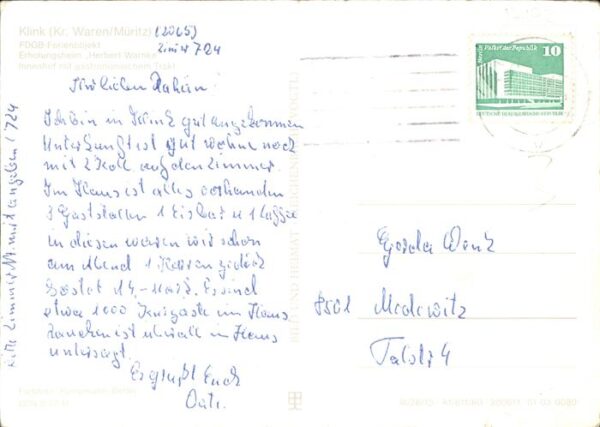 Klink (Kr. Waren/Müritz) (2065)
FDGB-Ferienobjekt Zimm 724
Erholungsheim „Herbert Warnke"
Innenhof mit gastronomischem Trakt
Ihr Lieben
Ich bin in Klink gut angekommen
Unterkunft ist gut wohne noch
mit 2 Koll. auf dem Zimmer.
Im Haus ist alles vorhanden
3 Gaststätten 1 Eisbar u 1 Kaffee
in diesen waren wir schon
am Abend 1
kostet 14,- Mark. Es sind
etwa 1000 Kurgäste im Haus
Rauchen ist überall im Haus
untersagt.
Es grüßt Euch
Bitte Zimmer Nr mit angeben / 724
BILD UND HEIMAT
Berlin Palast der Republik 10
DEUTSCHE DEMOKRATISCHE REPUBLIK
Gerda
8501 Medewitz
Talstr 4